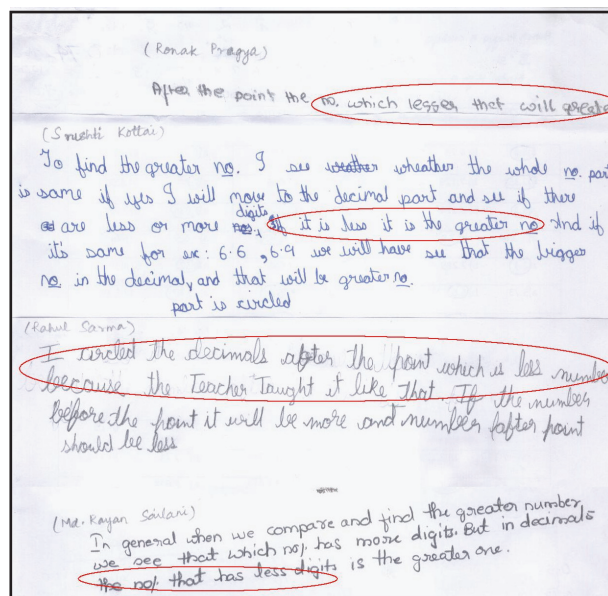 (Ronak Pragya)
After the point the no. which lesser that will greater
(Srushti Kottai)
To find the greater no. I see wheather the whole no. part
is same if yes I will move to the decimal part and see if there
are less or more digits, If it is less it is the greater no. And if
it's same for ex: 6.6 , 6.9 we will have see that the bigger
no. in the decimal, and that will be greater no.
part is circled
(Rahul Sarma)
I circled the decimals after the point which is less number
because the Teacher Taught it like that. If the number
before the point it will be more and number after point
should be less
(Md. Rayan Sailani)
In general when we compare and find the greater number
we see that which no/. has more digits. But in decimals
the no/. that has less digits is the greater one.